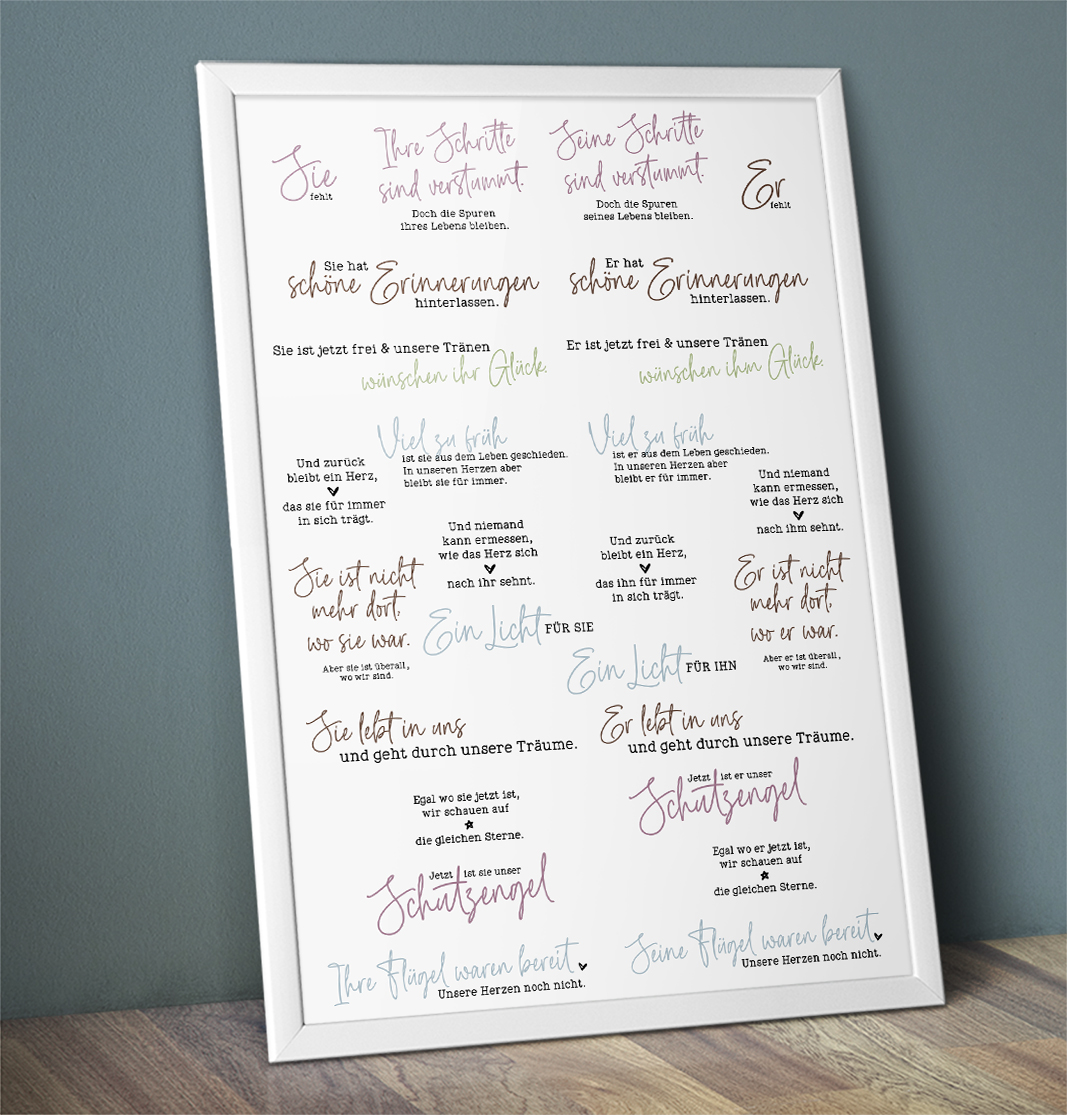 Sie
fehlt
Ihre Schritte
sind verstummt.
Doch die Spuren
ihres Lebens bleiben.
Seine Schritte
sind verstummt.
Doch die Spuren
seines Lebens bleiben.
Er
fehlt
Sie hat
schöne Erinnerungen
hinterlassen.
Er hat
schöne Erinnerungen
hinterlassen.
Sie ist jetzt frei & unsere Tränen
wünschen ihr Glück.
Er ist jetzt frei & unsere Tränen
wünschen ihm Glück.
Viel zu früh
ist sie aus dem Leben geschieden.
In unseren Herzen aber
bleibt sie für immer.
Viel zu früh
ist er aus dem Leben geschieden.
In unseren Herzen aber
bleibt er für immer.
Und zurück
bleibt ein Herz,
das sie für immer
in sich trägt.
Und niemand
kann ermessen,
wie das Herz sich
nach ihr sehnt.
Und zurück
bleibt ein Herz,
das ihn für immer
in sich trägt.
Und niemand
kann ermessen,
wie das Herz sich
nach ihm sehnt.
Sie ist nicht
mehr dort,
wo sie war.
Aber sie ist überall,
wo wir sind.
Ein Licht FÜR SIE
Ein Licht FÜR IHN
Er ist nicht
mehr dort,
wo er war.
Aber er ist überall,
wo wir sind.
Sie lebt in uns
und geht durch unsere Träume.
Er lebt in uns
und geht durch unsere Träume.
Egal wo sie jetzt ist,
wir schauen auf
die gleichen Sterne.
Jetzt ist er unser
Schutzengel
Jetzt ist sie unser
Schutzengel
Egal wo er jetzt ist,
wir schauen auf
die gleichen Sterne.
Ihre Flügel waren bereit
Unsere Herzen noch nicht.
Seine Flügel waren bereit
Unsere Herzen noch nicht.